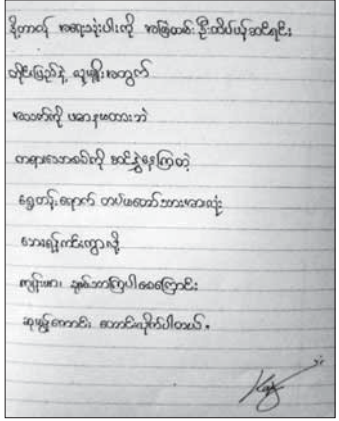 ဒို့တာဝန် အရေးသုံးပါးကို အမြဲတမ်း ဦးထိပ်ပန်ဆင်ရင်း
တိုင်းပြည်နဲ့ လူမျိုးအတွက်
အသက်ကို ပဓာနမထားဘဲ
တရားသောစစ်ကို ဆင်နွှဲနေကြတဲ့
ရွှေတန်းရောက် တပ်မတော်သားအားလုံး
ဘေးရန်ကင်းကွာလို့
ကျန်းမာ၊ ချမ်းသာကြပါစေကြောင်း
ဆုမွန်ကောင်း တောင်းလိုက်ပါတယ်။